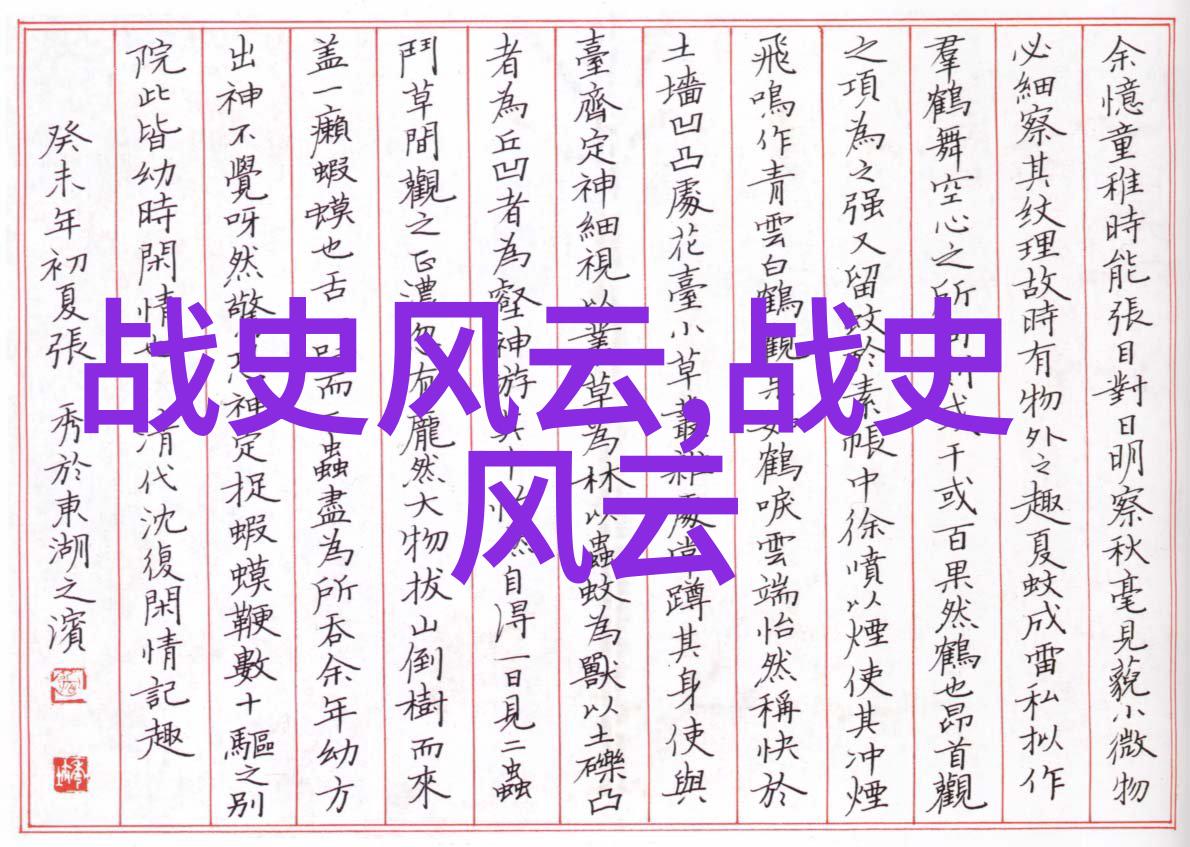 战史风云,战史
风云
余憶童稚時能張目對日明察秋毫見藐小微物
必細察其纹理故時有物外之趣夏蚊成雷私拟作
羣鶴舞空心之所向則或千或百果然鶴也昂首觀
之項為之强又留蚊於素帳中徐噴以煙使其冲煙
飛鳴作青雲白鶴觀果如鶴唳雲端怡然稱快於
土墻凹凸處花臺小草叢雜處常蹲其身使與
臺齊定神細視以叢草為林以蟲蚊為獸以土礫凸
者為丘凹者為壑神游其中怡然自得一日見二蟲
鬥草間觀之正濃忽有龐然大物拔山倒樹而來
盖一癩蝦蟆也舌一吐而二蟲盡為所吞余年幼方
出神不覺呀然驚恐神定捉蝦蟆鞭數十驅之别
院此皆幼時閑情 清代沈復閑情記趣
癸未年初夏張 秀於東湖之濱